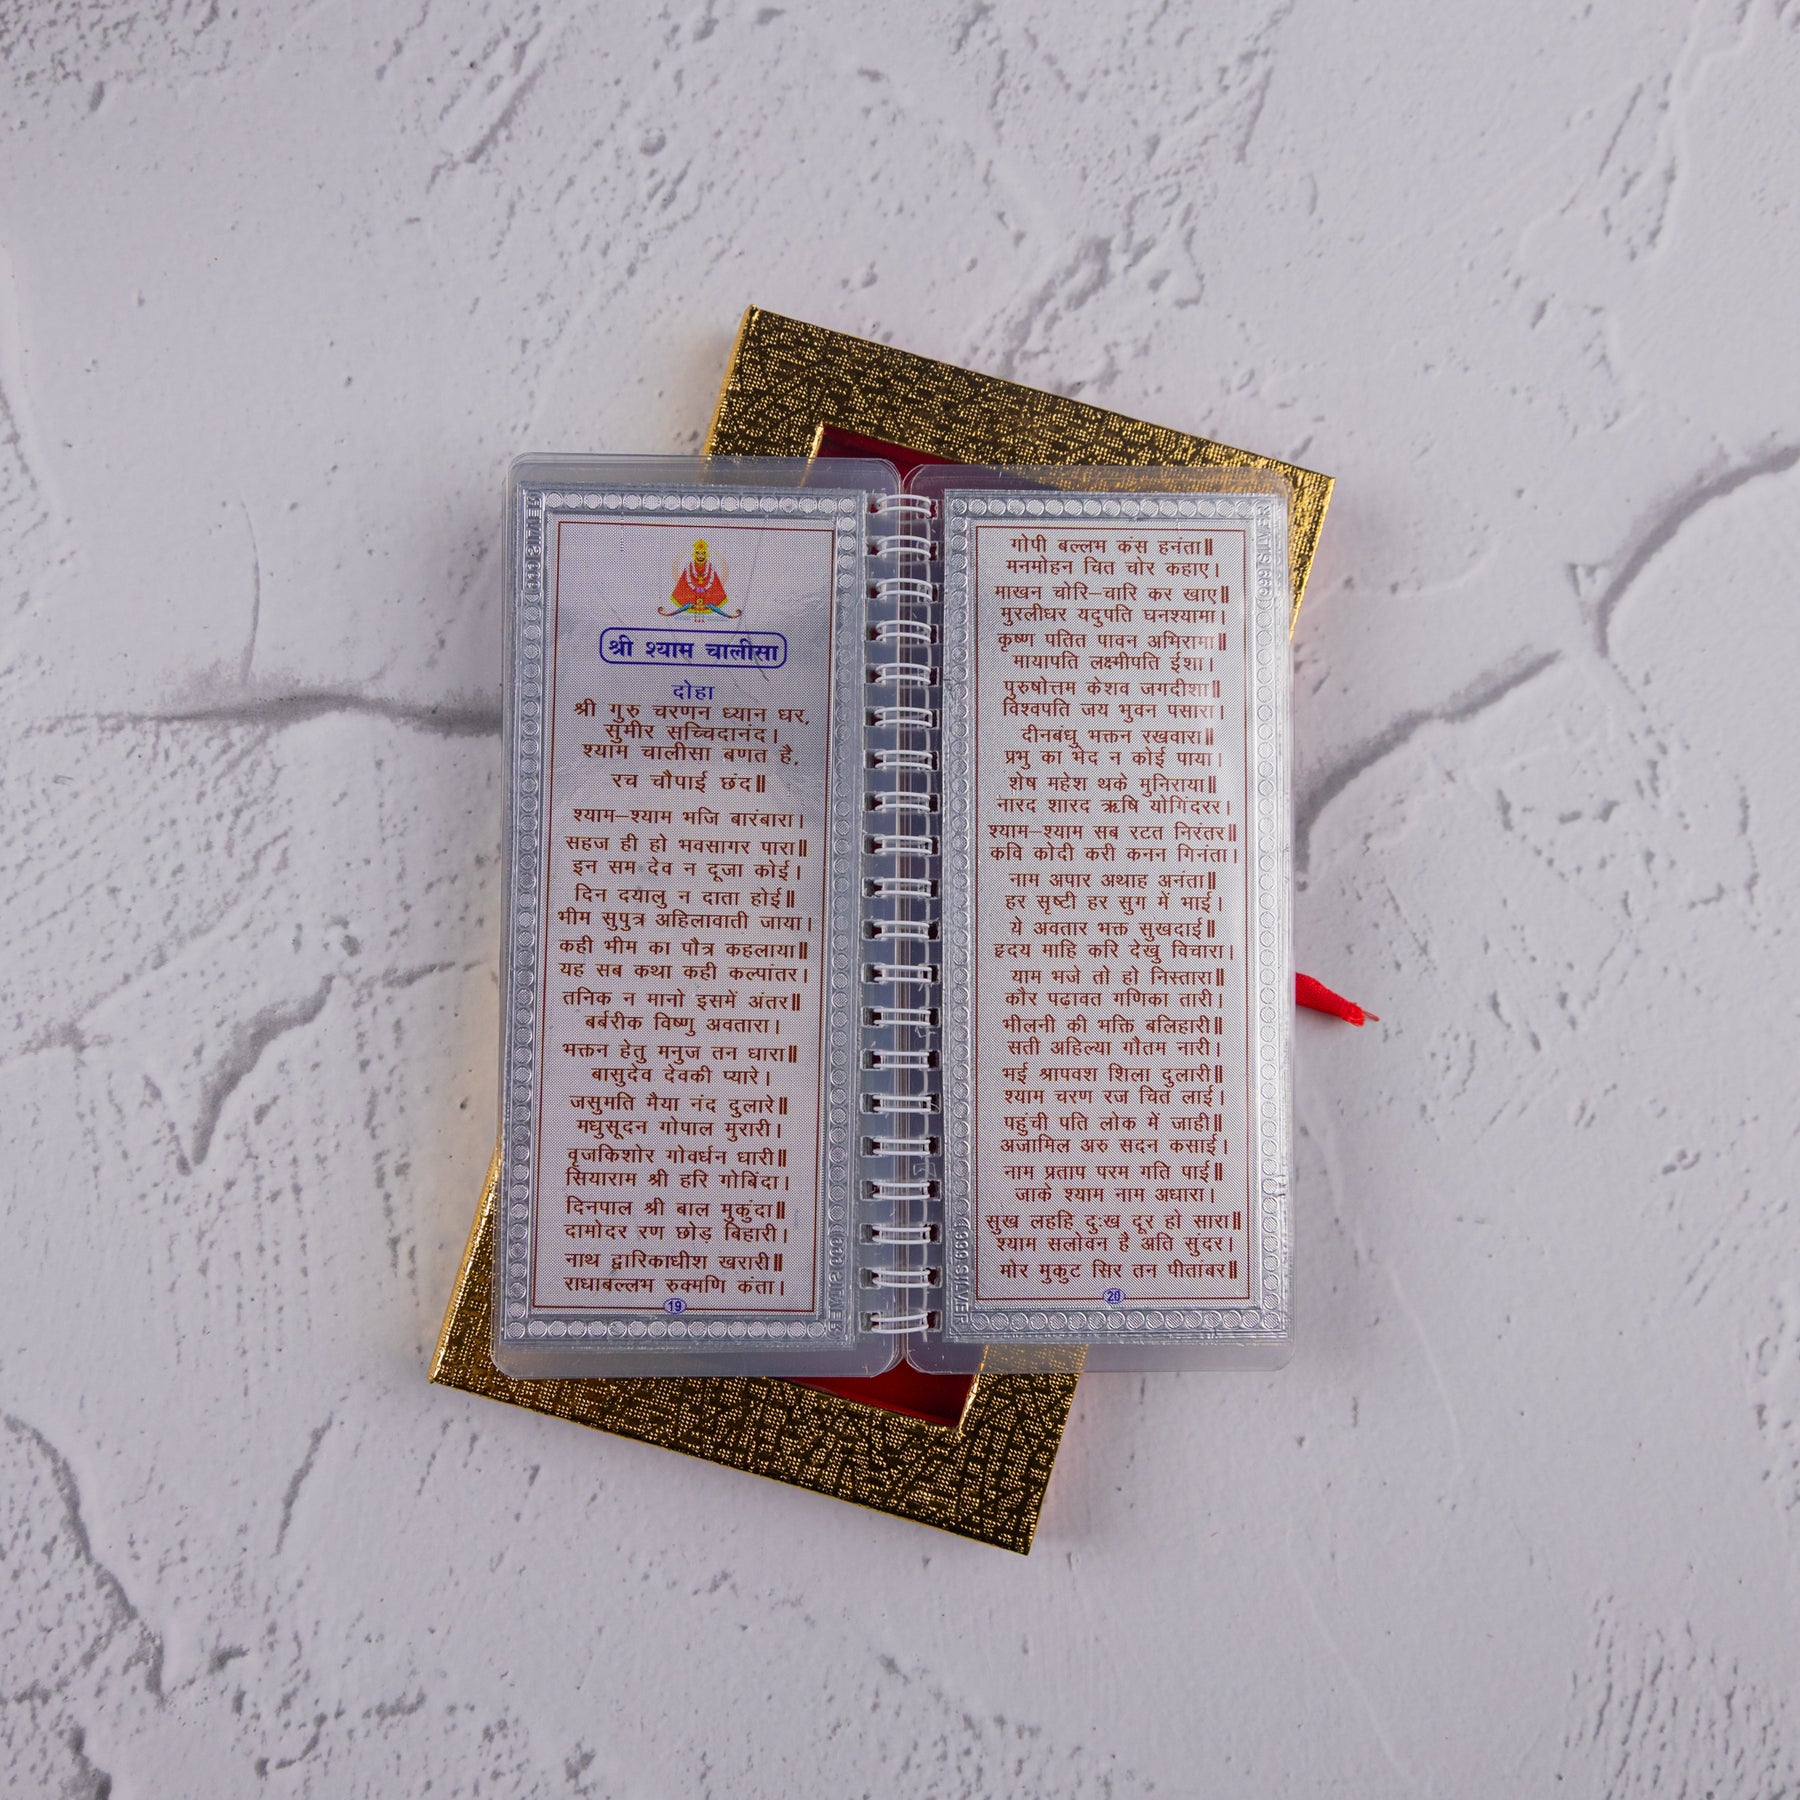 श्री श्याम चालीसा
दोहा
श्री गुरु चरणन ध्यान धर,
सुमीर सच्चिदानंद।
श्याम चालीसा बणत है,
रच चौपाई छंद॥
श्याम–श्याम भजि बारंबारा।
सहज ही हो भवसागर पारा॥
इन सम देव न दूजा कोई।
दिन दयालु न दाता होई॥
भीम सुपुत्र अहिलावाती जाया।
कही भीम का पौत्र कहलाया॥
यह सब कथा कही कल्पांतर।
तनिक न मानो इसमें अंतर॥
बर्बरीक विष्णु अवतारा।
भक्तन हेतु मनुज तन धारा॥
बासुदेव देवकी प्यारे।
जसुमति मैया नंद दुलारे॥
मधुसूदन गोपाल मुरारी।
वृजकिशोर गोवर्धन धारी॥
सियाराम श्री हरि गोबिंदा।
दिनपाल श्री बाल मुकुंदा॥
दामोदर रण छोड़ बिहारी।
नाथ द्वारिकाधीश खरारी॥
राधाबल्लभ रुक्मणि कंता।
19
गोपी बल्लभ कंस हनंता॥
मनमोहन चित चोर कहाए।
माखन चोरि–चारि कर खाए॥
मुरलीधर यदुपति घनश्यामा।
कृष्ण पतित पावन अभिरामा॥
मायापति लक्ष्मीपति ईशा।
पुरुषोत्तम केशव जगदीशा॥
विश्वपति जय भुवन पसारा।
दीनबंधु भक्तन रखवारा॥
प्रभु का भेद न कोई पाया।
शेष महेश थके मुनिराया॥
नारद शारद ऋषि योगिंदरर।
श्याम–श्याम सब रटत निरंतर॥
कवि कोदी करी कनन गिनंता।
नाम अपार अथाह अनंता॥
हर सृष्टी हर सुग में भाई।
ये अवतार भक्त सुखदाई॥
हृदय माहि करि देखु विचारा।
याम भजे तो हो निस्तारा॥
कौर पढ़ावत गणिका तारी।
भीलनी की भक्ति बलिहारी॥
सती अहिल्या गौतम नारी।
भई श्रापवश शिला दुलारी॥
श्याम चरण रज चित लाई।
पहुंची पति लोक में जाही॥
अजामिल अरु सदन कसाई।
नाम प्रताप परम गति पाई॥
जाके श्याम नाम अधारा।
सुख लहहि दुःख दूर हो सारा॥
श्याम सलोवन है अति सुंदर।
मोर मुकुट सिर तन पीतांबर॥
20
999 SILVER